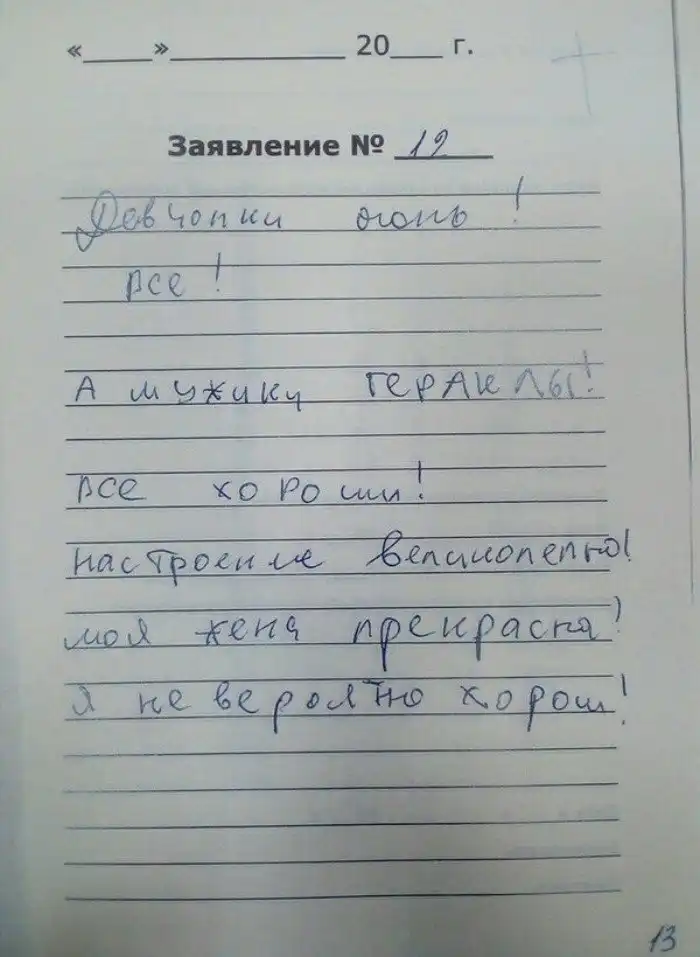 «____»__________ 20___ г.
Заявление № 12
Девчонки огонь!
все!
А мужики ГЕРАКЛЫ!
все хороши!
настроение великолепно!
моя жена прекрасна!
я не вероятно хорош!
13